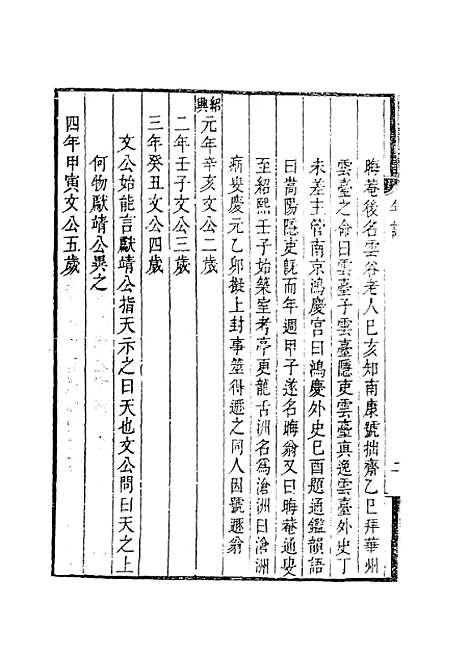 年譜
二
晦菴後名雲谷老人己亥知南康號拙齋乙巳拜華州
雲臺之命曰雲臺子雲臺隱吏雲臺真逸雲臺外史丁
未差主管南京鴻慶宮曰鴻慶外史己酉題通鑑韻語
曰嵩陽隱吏既而年週甲子遂名晦翁又曰晦菴通叟
至紹熙壬子始築室考亭更龍舌洲名爲滄洲曰滄洲
病叟慶元乙卯擬上封事筮得遯之同人因號遯翁
紹興元年辛亥文公二歲
二年壬子文公三歲
三年癸丑文公四歲
文公始能言獻靖公指天示之曰天也文公問曰天之上
何物獻靖公異之
四年甲寅文公五歲